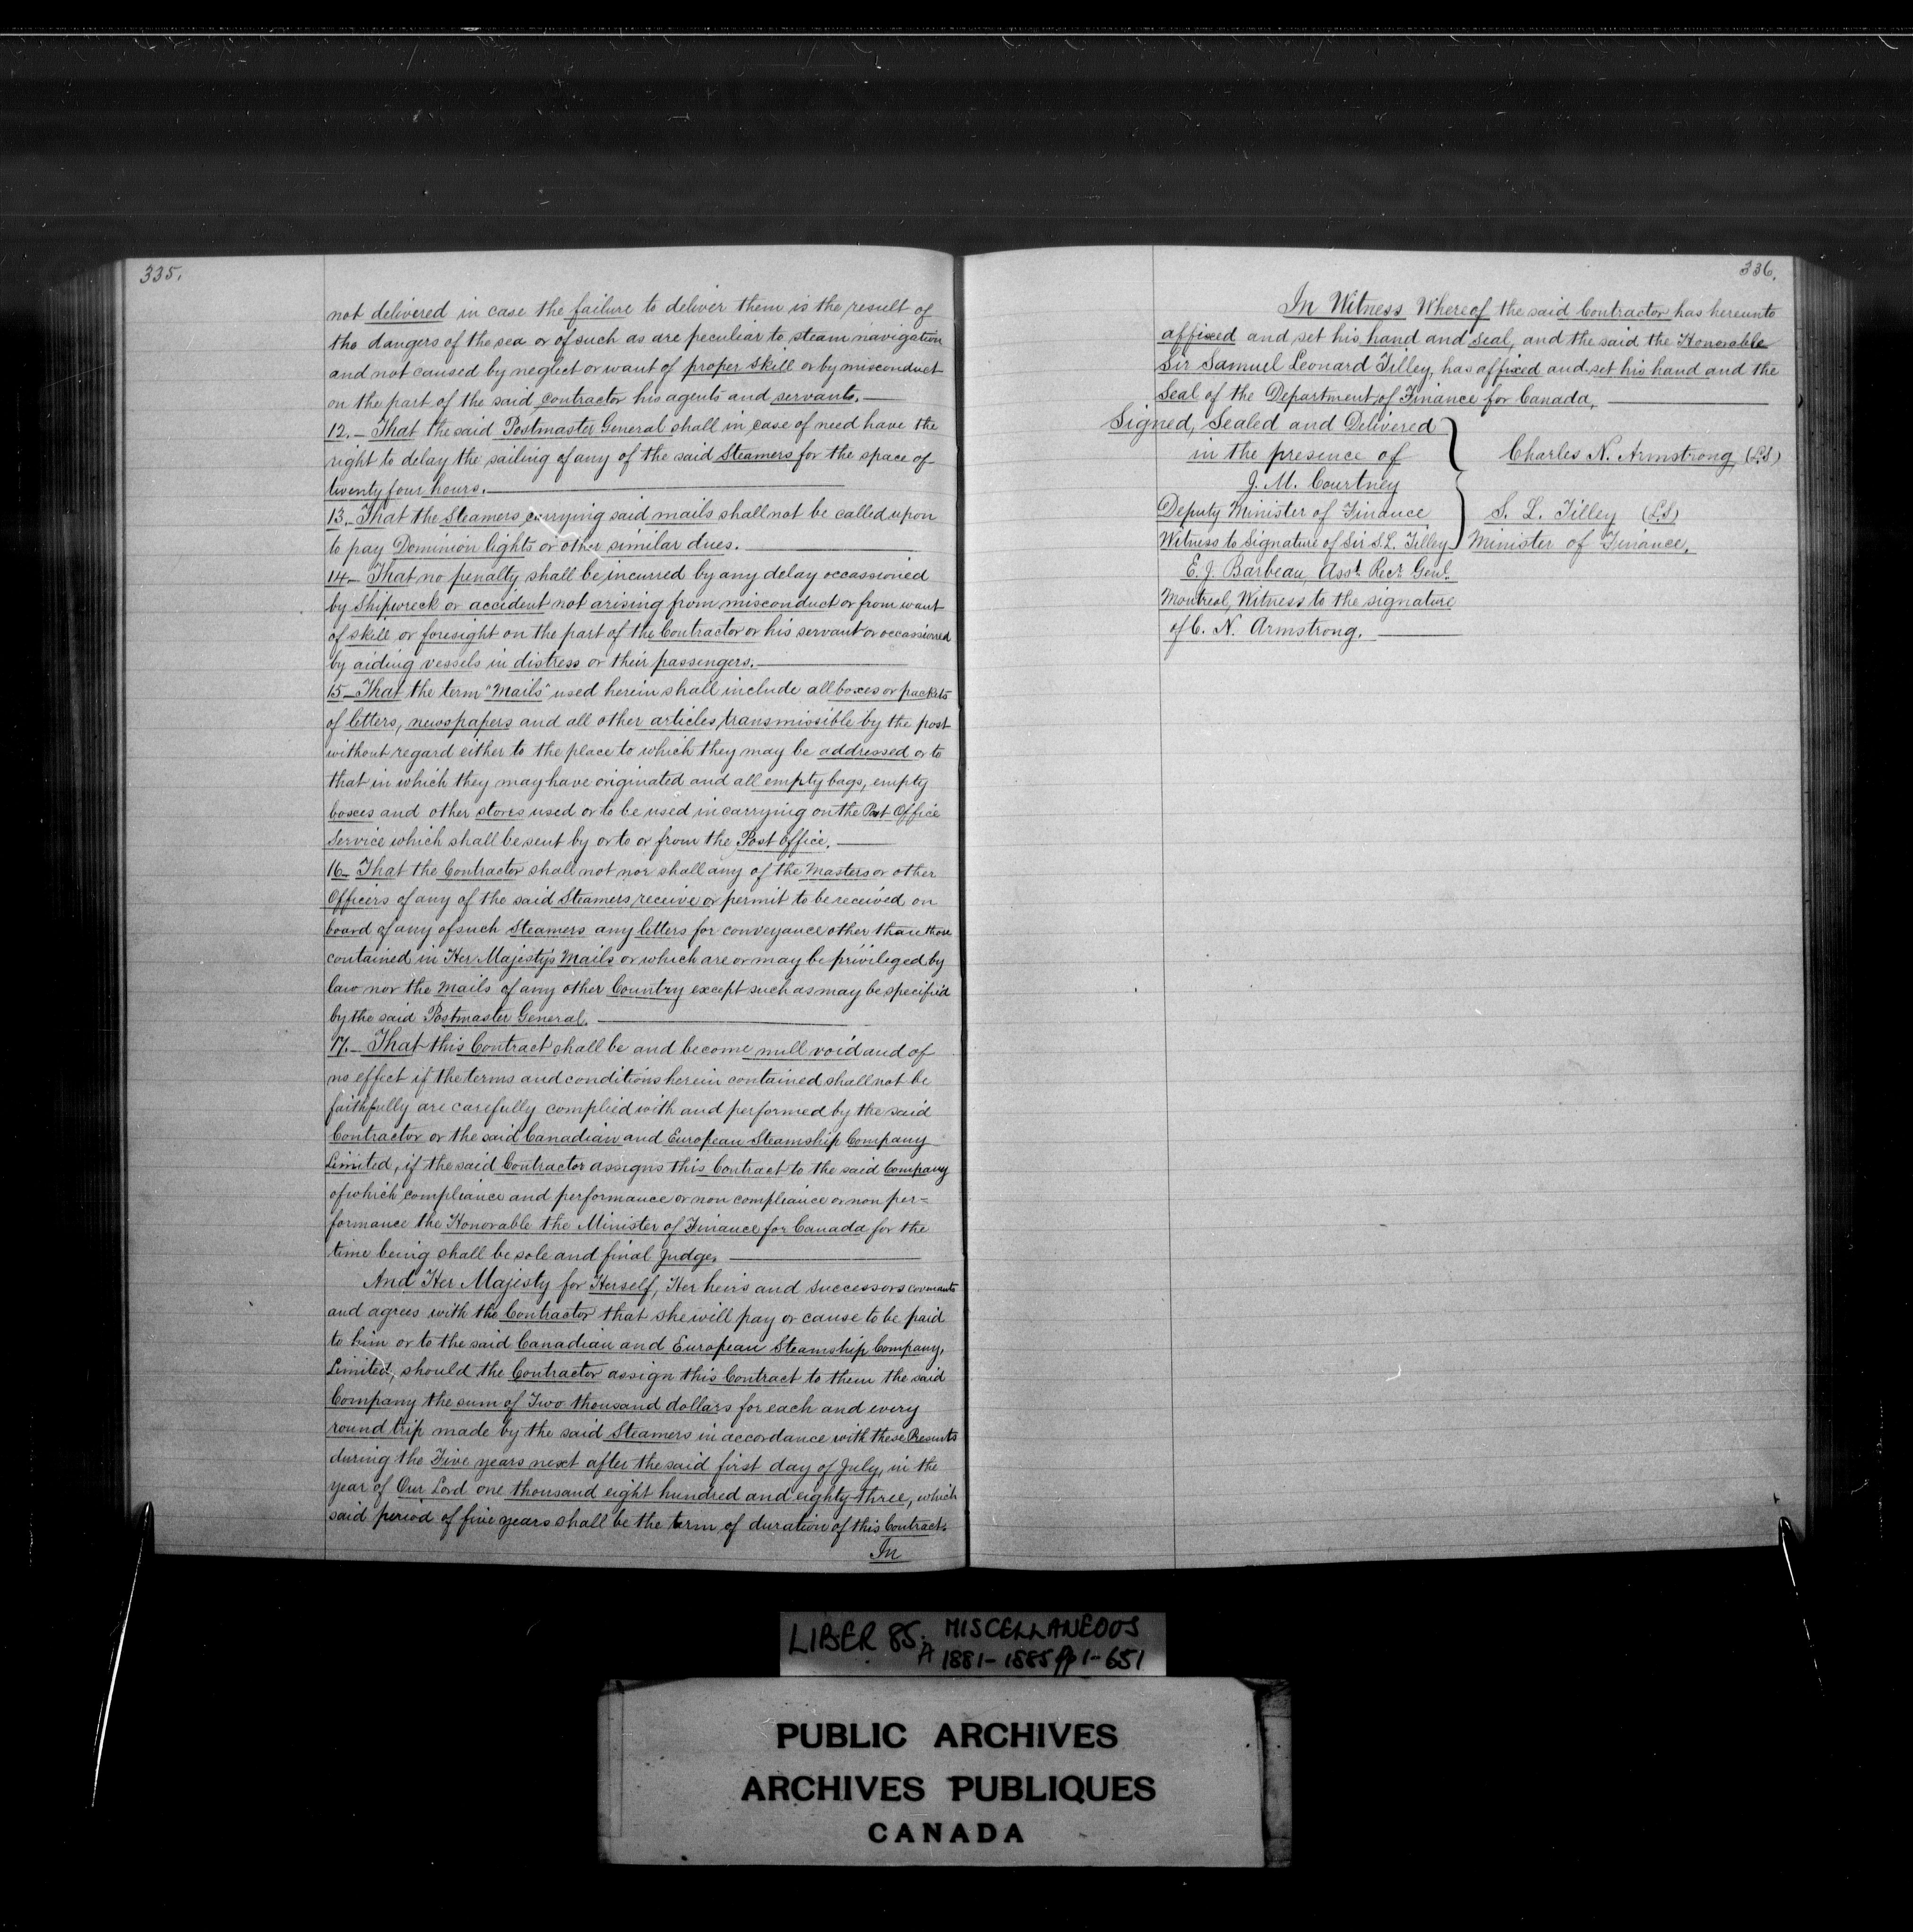 335.
not delivered in case the failure to deliver them is the result of
the dangers of the sea or of such as are peculiar to steam navigation
and not caused by neglect or want of proper skill or by misconduct
on the part of the said contractor his agents and servants.
12. - That the said Postmaster General shall in case of need have the
right to delay the sailing of any of the said Steamers for the space of
twenty four hours.
13. - That the Steamers carrying said mails shall not be called upon
to pay Dominion lights or other similar dues.
14 - That no penalty shall be incurred by any delay occassioned
by Shipwreck or accident not arising from misconduct or from want
of skill or foresight on the part of the Contractor or his servant or occassioned
by aiding vessels in distress or their passengers.
15 - That the term "Mails" used herein shall include all boxes or packets
of letters, newspapers and all other articles transmissible by the post
without regard either to the place to which they may be addressed or to
that in which they may have originated and all empty bags, empty
boxes and other stores used or to be used in carrying on the Post Office
Service which shall be sent by or to or from the Post Office.
16 - That the Contractor shall not nor shall any of the Masters or other
Officers of any of the said Steamers receive or permit to be received on
board of any of such Steamers any letters for conveyance other than those
contained in Her Majesty's Mails or which are or may be privileged by
law nor the Mails of any other Country except such as may be specified
by the said Postmaster General.
17. - That this Contract shall be and become null void and of
no effect if the terms and conditions herein contained shall not be
faithfully are carefully complied with and performed by the said
Contractor or the said Canadian and European Steamship Company
Limited, if the said Contractor assigns this Contract to the said Company
of which compliance and performance or non compliance or non per=
formance the Honorable the Minister of Finance for Canada for the
time being shall be sole and final Judge.
And Her Majesty for Herself, Her heirs and successors covenants
and agrees with the Contractor that she will pay or cause to be paid
to him or to the said Canadian and European Steamship Company,
Limited, should the Contractor assign this Contract to them the said
Company the sum of Two thousand dollars for each and every
round trip made by the said Steamers in accordance with these Presents
during the Five years next after the said first day of July, in the
year of Our Lord one thousand eight hundred and eighty-three, which
said period of five years shall be the term of duration of this Contract.
In
336.
In Witness Whereof the said Contractor has hereunto
affixed and set his hand and seal, and the said the Honorable
Sir Samuel Leonard Tilley, has affixed and set his hand and the
Seal of the Department of Finance for Canada,
Signed, Sealed and Delivered
in the presence of
Charles N. Armstrong (L.S)
J. M. Courtney
Deputy Minister of Finance
S. L. Tilley (L.S)
Witness to Signature of Sir S. L. Tilley
Minister of Finance.
E. J. Barbeau, Asst. Recr. Genl.
Montreal, Witness to the signature
of C. N. Armstrong.
LIBER 85. MISCELLANEOUS
A 1881-1885 pp 1-651
PUBLIC ARCHIVES
ARCHIVES PUBLIQUES
CANADA